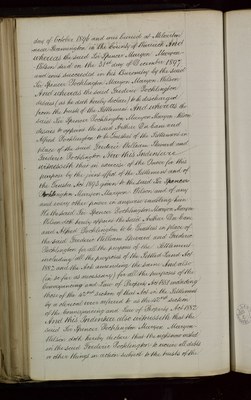 day of October 1896 and was buried at
near Leamington in the County of Warwick And
whereas the said Sir Spencer Maryon Maryon-
Wilson died on the 31st day of December 1897
and was succeeded in his Baronetcy by the said
Sir Spencer Pocklington Maryon Maryon Wilson
And whereas the said Frederic Pocklington
desires (as he doth hereby declare) to be discharged
from the trusts of the Settlement And whereas the
said Sir Spencer Pocklington Maryon Maryon Wilson
desires to appoint the said Arthur
and Alfred Pocklington to be Trustees of the Settlement in
place of the said Frederic William and
Frederic Pocklington Now this Indenture
witnesseth that in exercise of the Power for this
purpose by the joint effect of the Settlement and of
the Trustee Act 1893 given to the said Sir Spencer
Pocklington Maryon Maryon Wilson and of any
and every other power in anywise enabling him
He the said Sir Spencer Pocklington Maryon Maryon
Wilson doth hereby appoint the said Arthur
and Alfred Pocklington to be Trustees in place of
the said Frederic William and Frederic
Pocklington for all the purposes of the Settlement
including all the purposes of the Settled Land Act
1882 and the Act amending the same And also
(in so far as necessary) for all the purposes of the
Conveyancing and Law of Property Act 1881 including
those of the 42nd section of that Act
of the Conveyancing and Law of Property Act 1882
And this Indenture also witnesseth that the
said Sir Spencer Pocklington Maryon Maryon
Wilson doth hereby declare that the
in the said Frederic Pocklington
or other things in action subject to the trusts of the